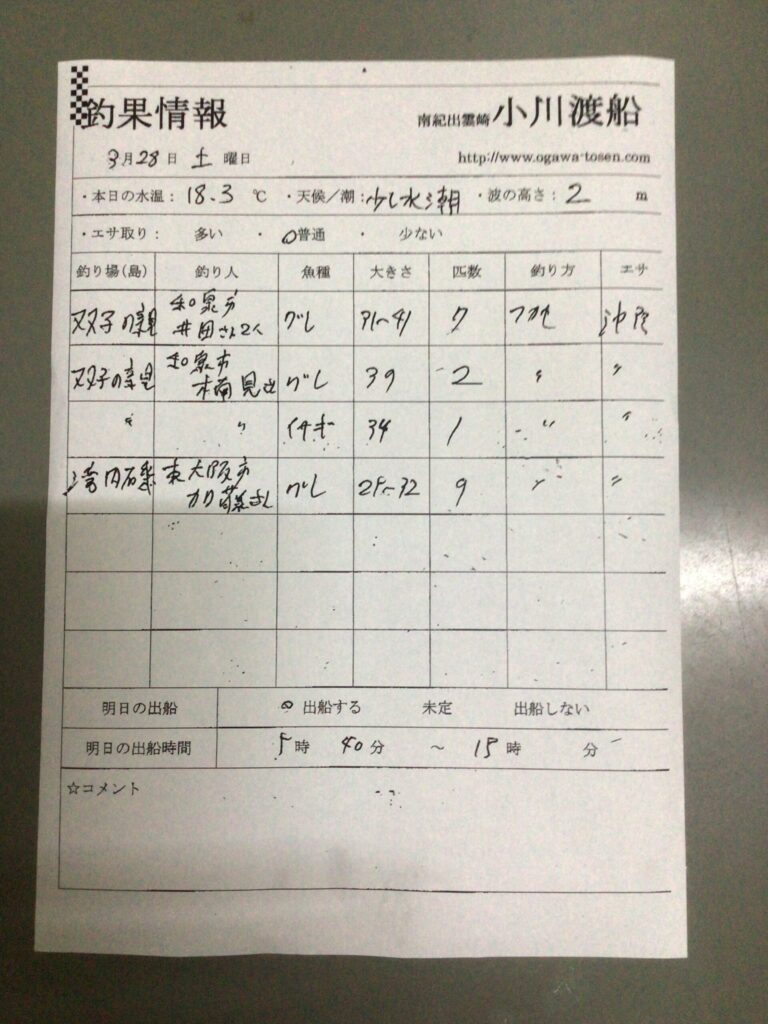 釣果情報
南紀出雲崎 小川渡船
3月28日 土 曜日
http://www.ogawa-tosen.com
・本日の水温： 18.3 ℃ ・天候／潮：少し水潮 ・波の高さ： 2 m
・エサ取り： 多い ・ ○普通 ・ 少ない
釣り場(島) 釣り人 魚種 大きさ 匹数 釣り方 エサ
双子の親 和泉市 井田さん2人 グレ 31〜41 7 フカセ
双子の親 和泉市 グレ 39 2 〃 〃
〃 〃 イサギ 34 1 〃 〃
湾内磯 東大阪市 加藤さん グレ 25〜32 9 〃 〃
明日の出船 ○ 出船する 未定 出船しない
明日の出船時間 5時 40分 〜 15時 分
☆コメント